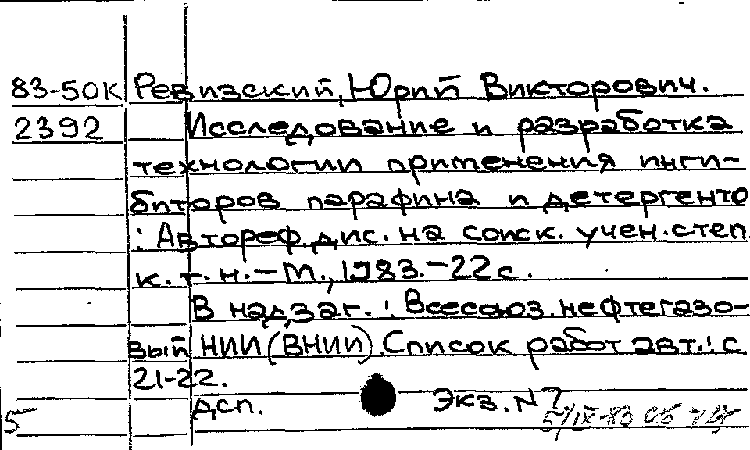 83-50К Ревизский, Юрий Викторович.
2392 Исследование и разработка
технологии применения инги-
биторов парафина и детергенто
: Автореф. дис. на соиск. учен. степ
к. т. н. – М., 1983. – 22 с.
В надзаг. : Всесоюз. нефтегазо-
вый НИИ (ВНИИ). Список работ авт.: с
21-22.
ДСП. Экз. N 7
5